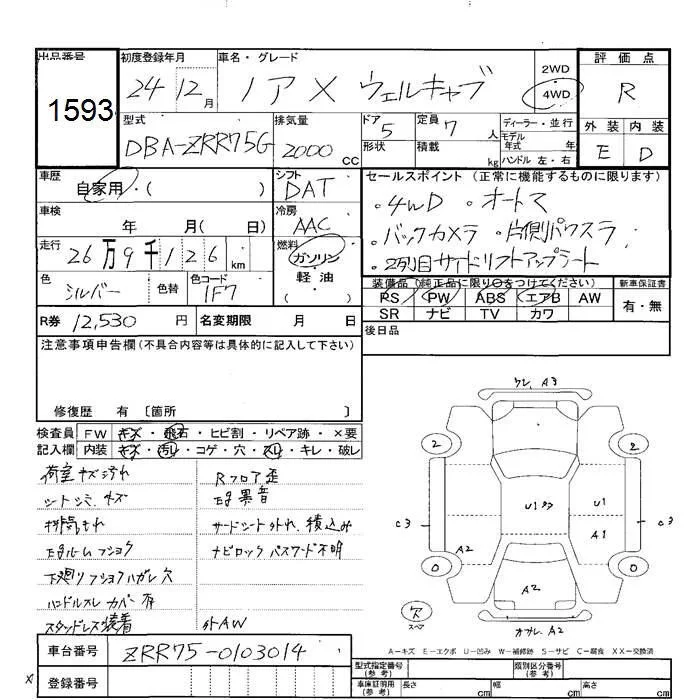 出品番号 初度登録年月 車名・グレード 評価点
1593 24 12月 ノア X ウェルキャブ 2WD 4WD R
型式 排気量 ドア 5 定員 7 人 ディーラー・並行 外装 内装
DBA-ZRR75G 2000 CC 形状 積載 kg モデル 年/式 ハンドル 左・右 E D
車歴 自家用・( ) シフト DAT セールスポイント (正常に機能するものに限ります)
車検 年 月( 日) 冷房 AAC ・4WD ・オートマ
・バックカメラ ・片側パワスラ
走行 26万9千126 km 燃料 ガソリン 軽油 ・2列目サイドリフトアップシート
色 シルバー 色替 色コード 1F7 装備品(純正品に限り○をつけてください) 新車保証書
PS PW ABS エアB AW 有・無
R券 12,530 円 名変期限 月 日 SR ナビ TV カワ
後日品
注意事項申告欄(不具合内容等は具体的に記入して下さい)
修復歴 有 〔箇所 〕
検査員 FW キズ・飛石・ヒビ割・リペア跡・×要
記入欄 内装 キズ・汚レ・コゲ・穴・スレ・キレ・破レ
荷室キズ汚れ Rフロア歪
シートシミ、キズ
排気もれ サードシート外れ、積込み
ナビロック パスワード不明
下廻りフショクハガレ穴
ハンドルスレ カバー有
スタッドレス装着 外AW
ワレ A3
2 2
U1 U1
C3 C3
A2 A1
0 0
A2
ス スペア
A2
A-キズ E-エクボ U-凹み W-補修跡 S-サビ C-腐食 XX-交換済
車台番号 ZRR75-0103014
登録番号
型式指定番号 (参考) 類別区分番号 (参考)
車庫証明用 (参考) 長さ cm 幅 cm 高さ cm